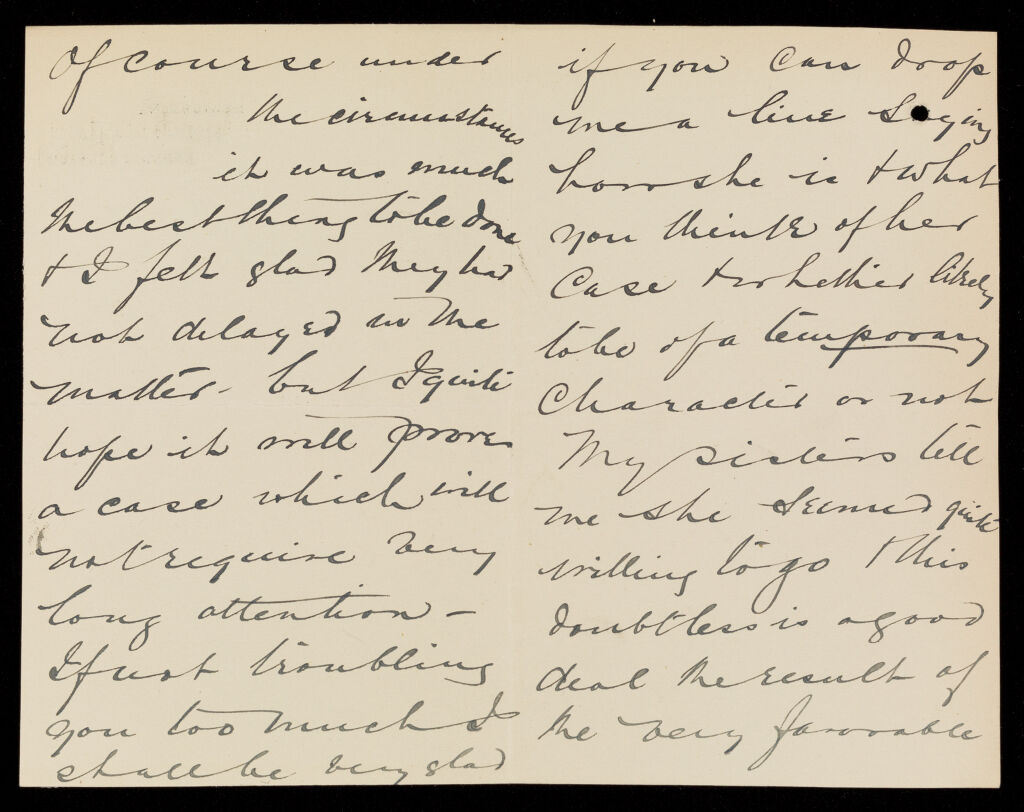 Of course under
the circumstances
it was much
the best thing to be done
& I felt glad they had
not delayed in the
matter - but I quite
hope it will prove
a case which will
not require very
long attention -
If not troubling
you too much I
shall be very glad
if you can drop
me a line saying
how she is & what
you think of her
case & whether likely
to be of a temporary
character or not
My sisters tell
me she seemed quite
willing to go & this
doubtless is a good
deal the result of
the very favorable